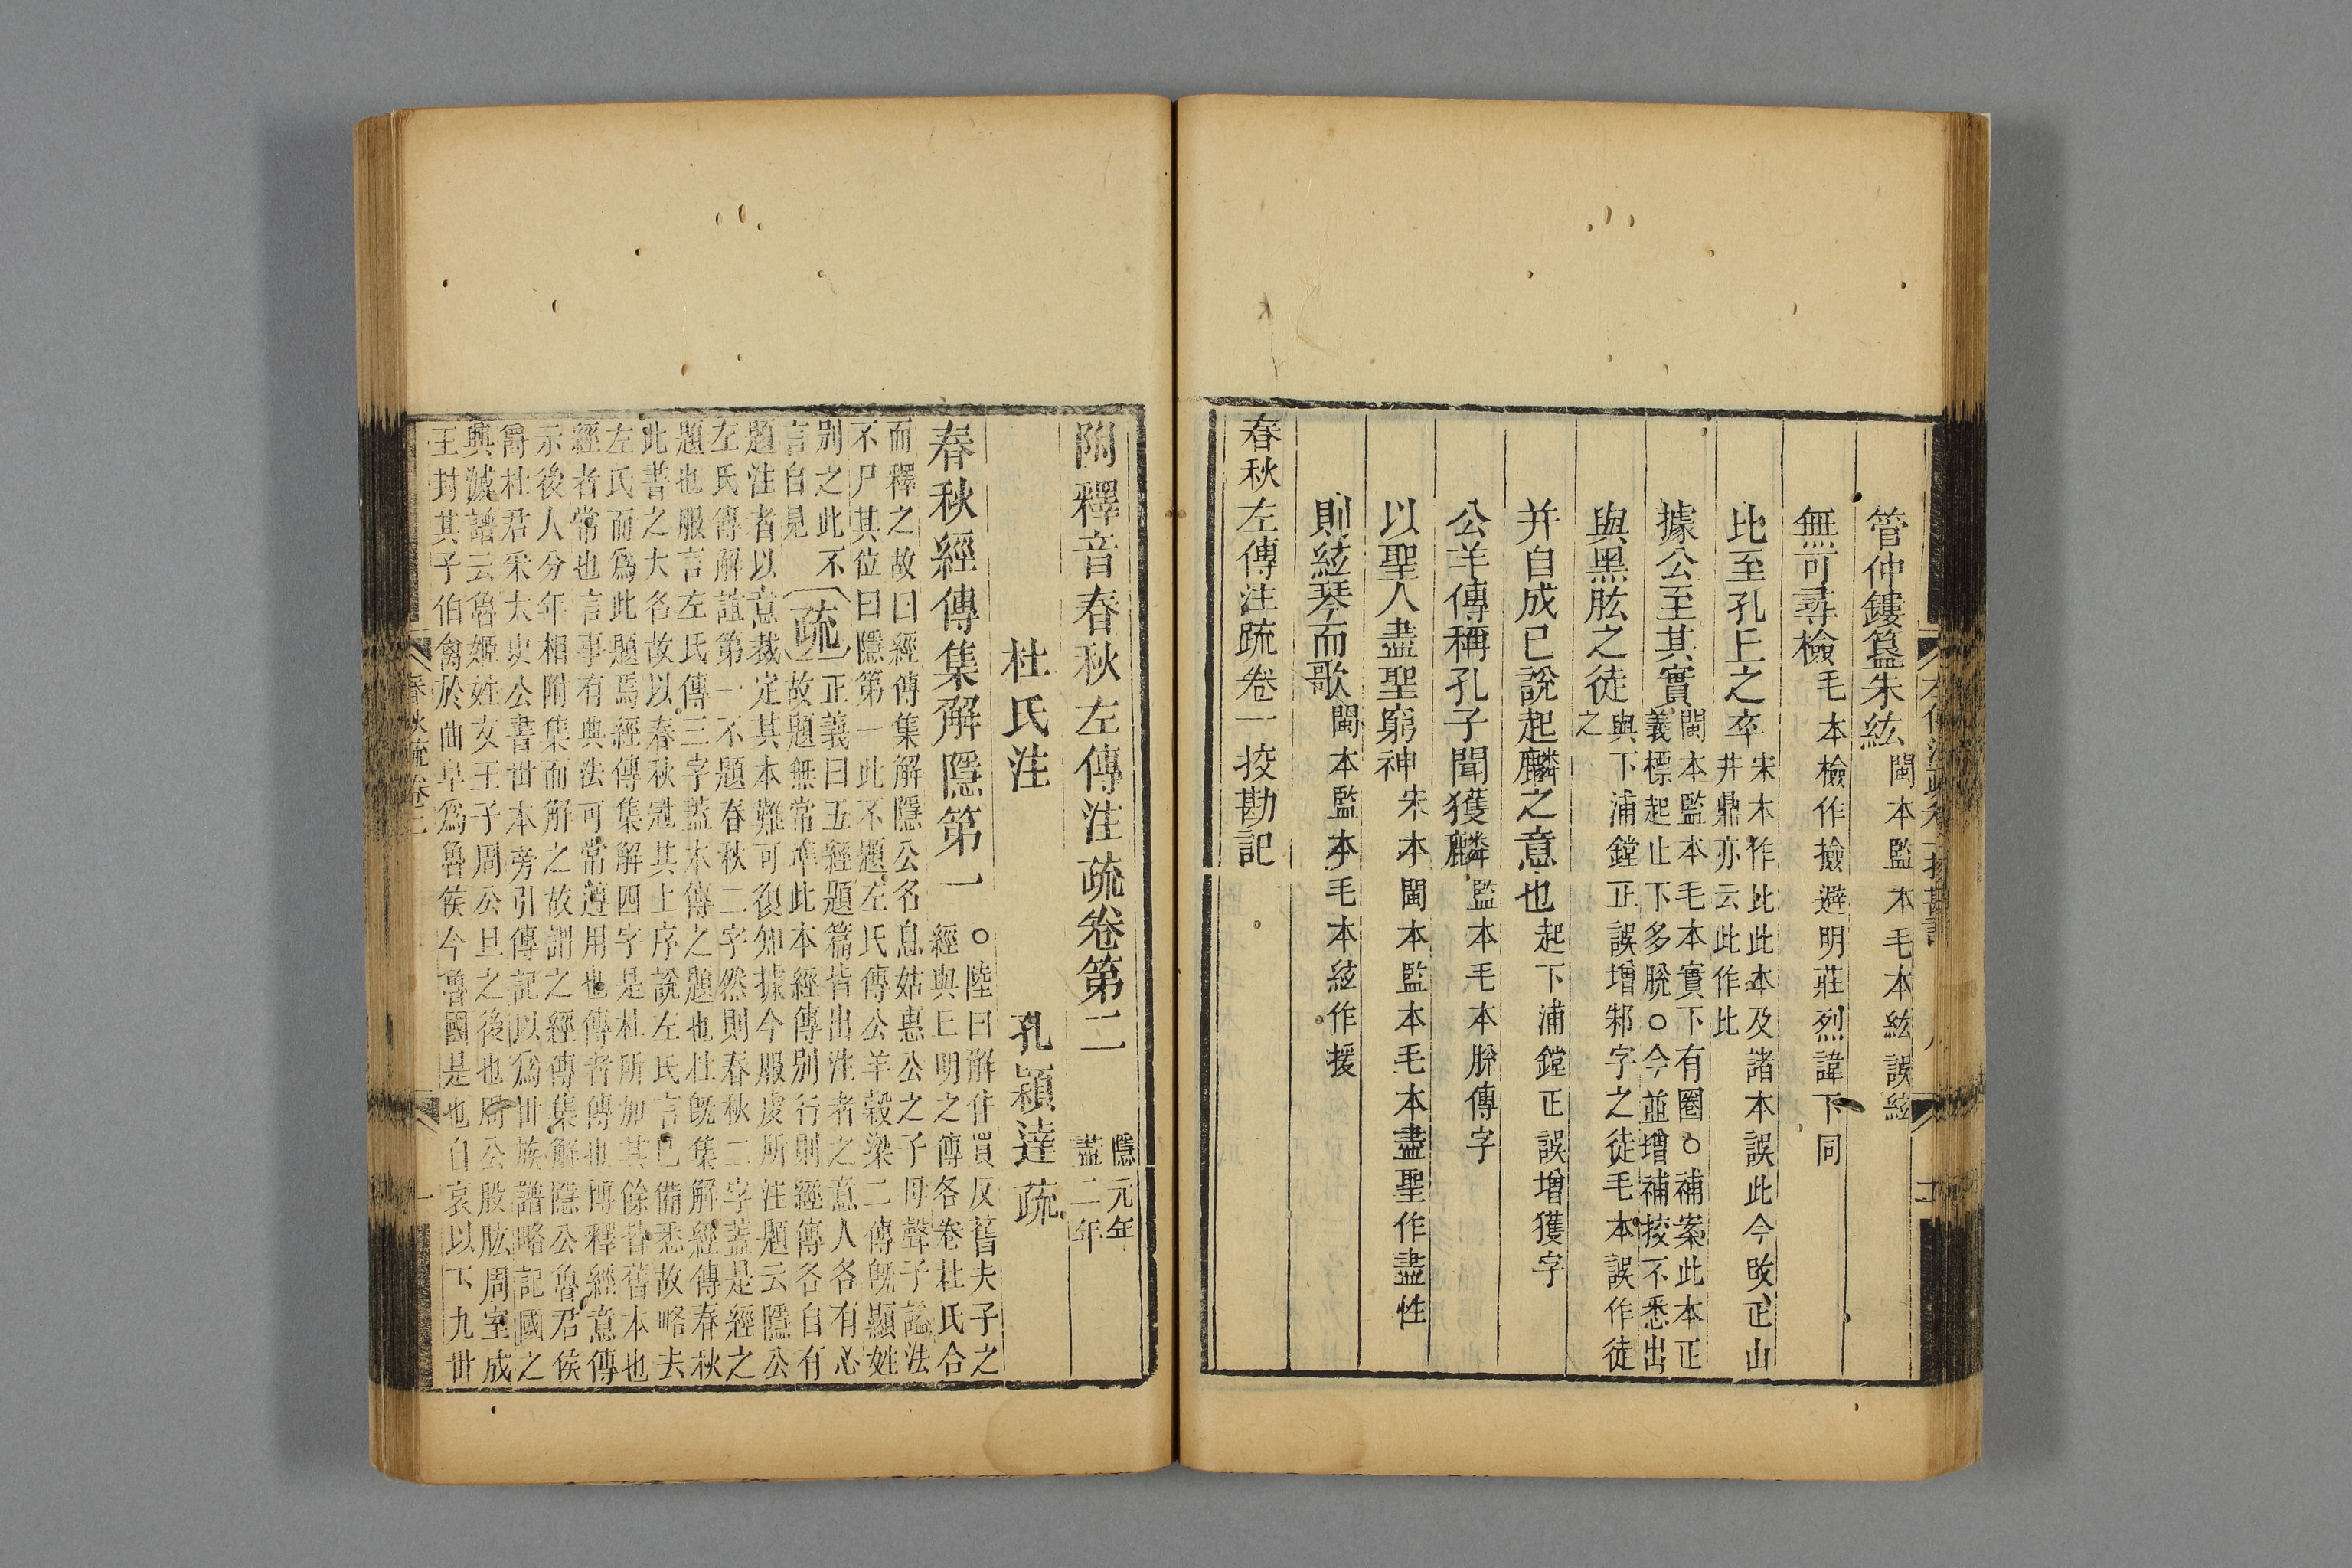 管仲鏤簋朱紘閩本監本毛本紘誤絃
無可尋檢毛本檢作撿避明莊烈諱下同
比至孔丘之卒宋本作比此本及諸本誤此今改正山
井鼎亦云此作比
據公至其實閩本監本毛本實下有圈○補案此本正
義標起止下多脫○今並增補挍不悉出
與黑肱之徒與下浦鏜正誤增邾字之徒毛本誤作徒
之
并自成已說起麟之意也起下浦鏜正誤增獲字
公羊傳稱孔子聞獲麟監本毛本脫傳字
以聖人盡聖窮神宋本閩本監本毛本盡聖作盡性
則絃琴而歌閩本監本毛本絃作援
春秋左傳注疏卷一挍勘記
附釋音春秋左傳注疏卷第二
隱元年
盡二年
杜氏注 孔穎達疏
春秋經傳集解隱第一○陸曰解佳買反舊夫子之
經與丘明之傳各卷杜氏合
而釋之故曰經傳集解隱公名息姑惠公之子母聲子謚法
不尸其位曰隱第一此不題左氏傳公羊穀梁二傳旣顯姓
別之此不疏正義曰五經題篇皆出注者之意人各有心
言自見 故題無常準此本經傳別行則經傳各自有
題注者以意裁定其本難可復知據今服虔所注題云隱公
左氏傳解誼第一不題春秋二字然則春秋二字蓋是經之
題也服言左氏傳三字蓋本傳之題也杜旣集解經傳春秋
此書之大名故以春秋冠其上序說左氏言已備悉故略去
左氏而爲此題焉經傳集解四字是杜所加其餘皆舊本也
經者常也言事有典法可常遵用也傳者傳也博釋經意傳
示後人分年相附集而解之故謂之經傳集解隱公魯君侯
爵杜君采大史公書世本旁引傳記以爲世族譜略記國之
興滅譜云魯姬姓文王子周公旦之後也周公股肱周室成
王封其子伯禽於曲阜爲魯侯今魯國是也自哀以下九世
春秋疏卷二
一